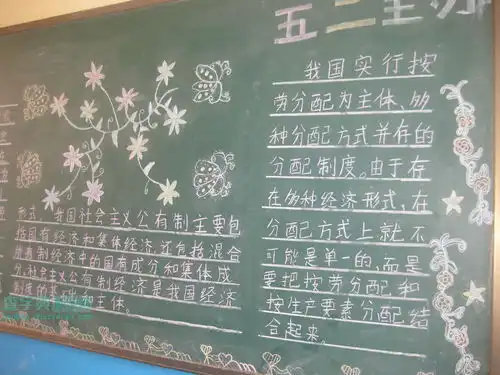 五二主办
形式。我国社会主义公有制主要包
括国有经济和集体经济,还包括混合
所有制经济中的国有成分和集体成
分,社会主义公有制经济是我国经济
制度的基础 主体。
我国实行按
劳分配为主体、多
种分配方式并存的
分配制度。由于存
在多种经济形式,在
分配方式上就不
可能是单一的,而是
要把按劳分配和
按生产要素分配结
合起来。